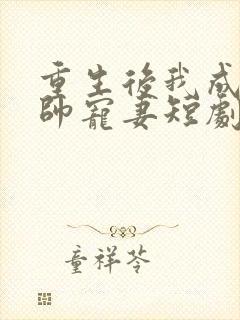 重生後我成
帥寵妻短劇
童祥苓